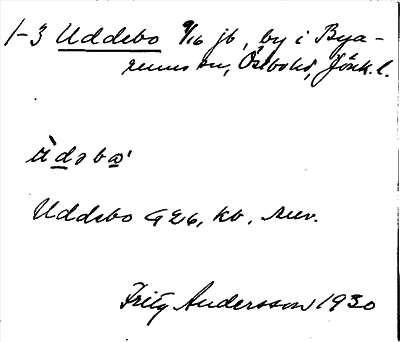 1-3 Uddebo 9/16 jb, by i Bya-
rums sn, Östbo hd, Jönk. l.
ùdəbω'
Uddebo GEG, kb, reev.
Fritz Andersson 1930